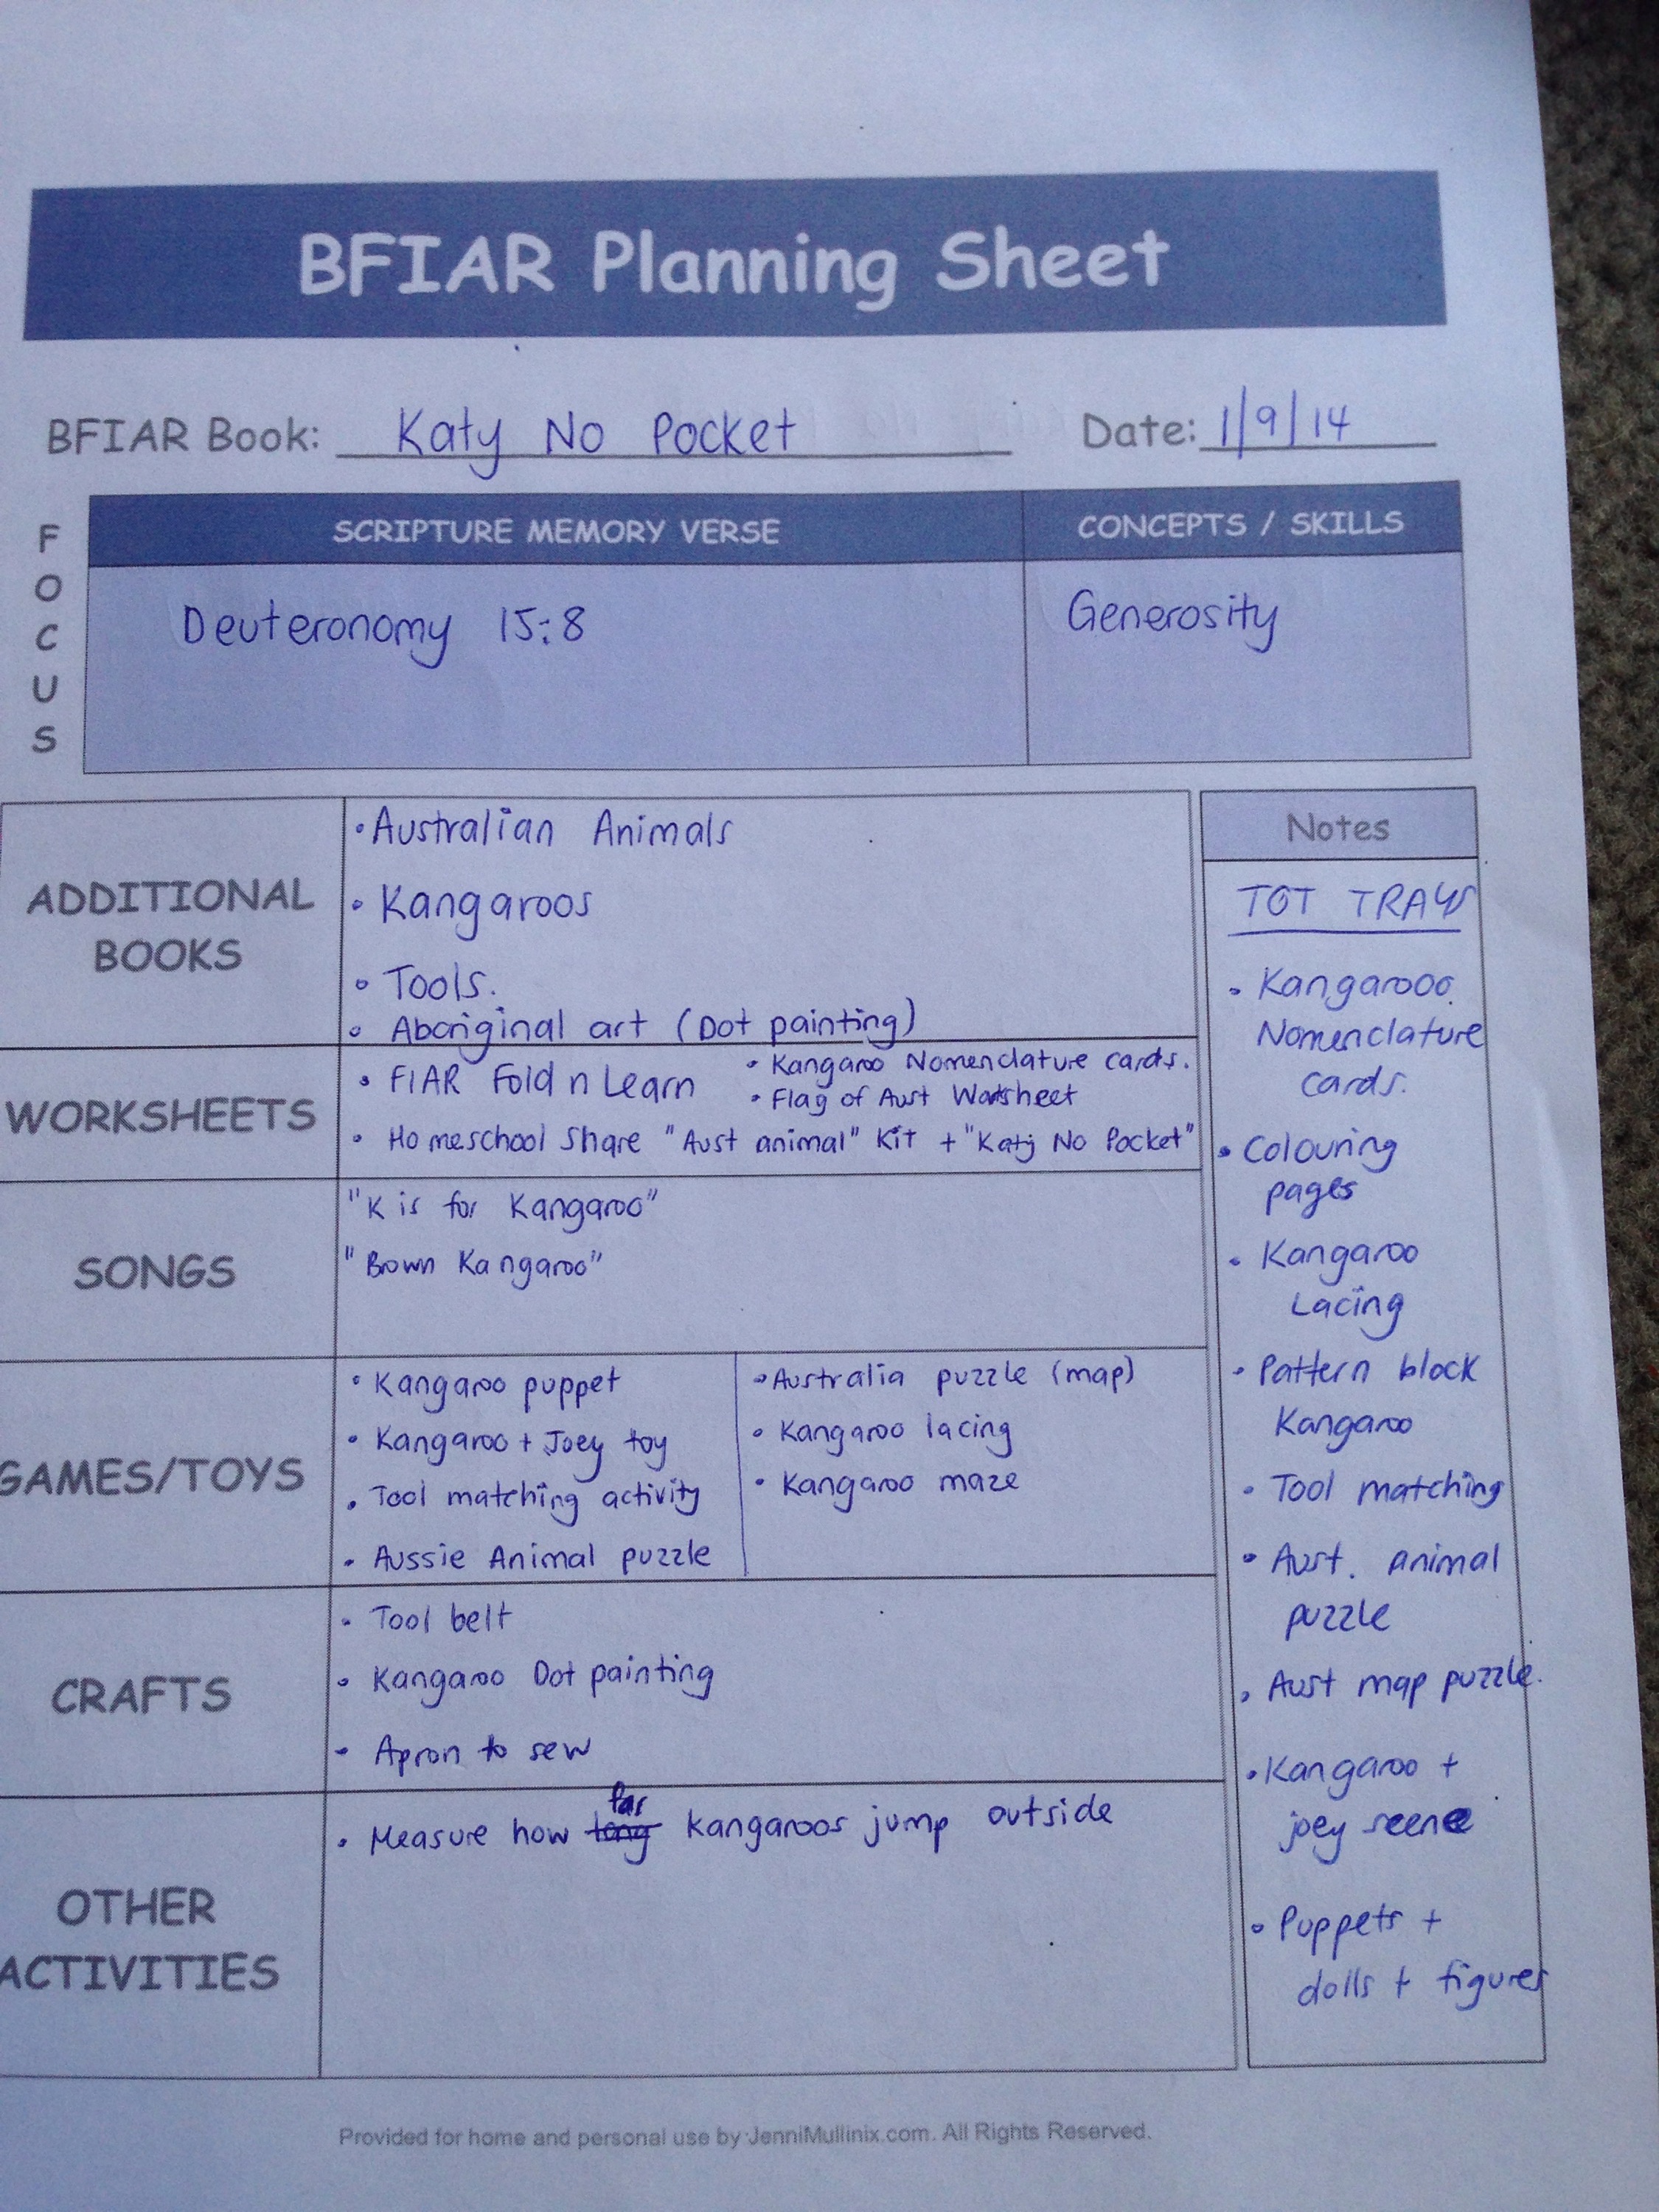 BFIAR Planning Sheet
BFIAR Book: Katy No Pocket Date: 1/9/14
FOCUS
SCRIPTURE MEMORY VERSE
Deuteronomy 15:8
CONCEPTS / SKILLS
Generosity
ADDITIONAL
BOOKS
• Australian Animals
• Kangaroos
• Tools.
• Aboriginal art (Dot painting)
WORKSHEETS
• FIAR Fold n Learn
• Kangaroo Nomenclature cards.
• Flag of Aust Worksheet
• Homeschool Share "Aust animal" Kit + "Katy No Pocket"
SONGS
"K is for Kangaroo"
"Brown Kangaroo"
GAMES/TOYS
• Kangaroo puppet
• Kangaroo + Joey toy
• Tool matching activity
• Aussie Animal puzzle
• Australia puzzle (map)
• Kangaroo lacing
• Kangaroo maze
CRAFTS
• Tool belt
• Kangaroo Dot painting
• Apron to sew
OTHER
ACTIVITIES
• Measure how long far kangaroos jump outside
Notes
TOT TRAYS
• Kangaroo
Nomenclature
cards.
• Colouring
pages
• Kangaroo
Lacing
• Pattern block
Kangaroo
• Tool matching
• Aust. animal
puzzle
• Aust map puzzle.
• Kangaroo +
joey scene
• Puppets +
dolls + figures
Provided for home and personal use by JenniMullinix.com. All Rights Reserved.